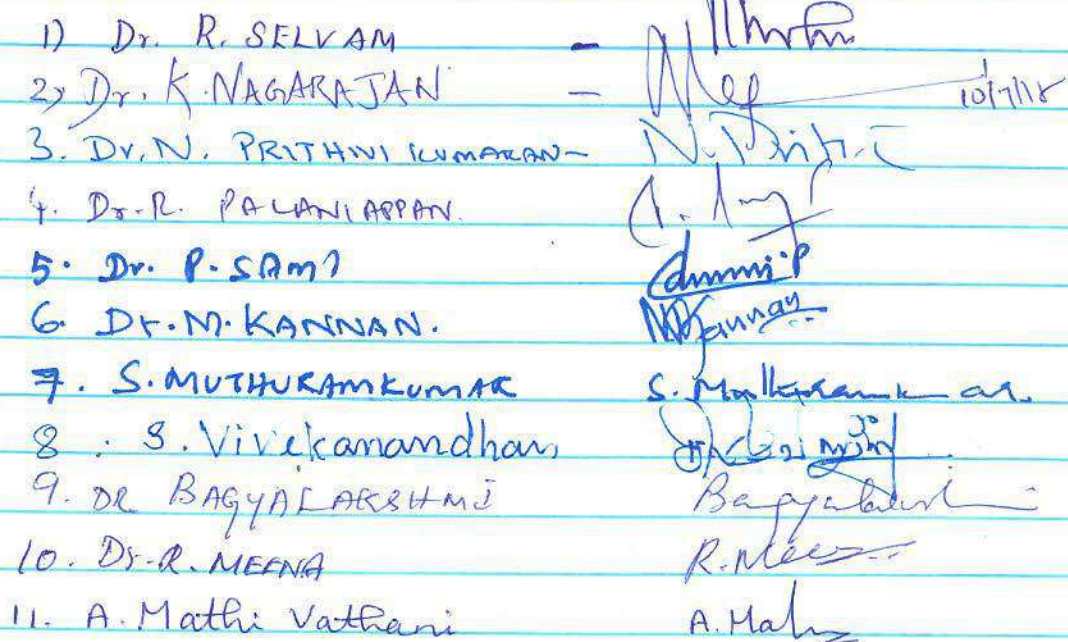 1) Dr. R. SELVAM -
2) Dr. K. NAGARAJAN - 10/7/18
3. Dr. N. PRITHIVI KUMARAN - N. Prithi
4. Dr. R. PALANIAPPAN.
5. Dr. P. SAMI
6. Dr. M. KANNAN. M Kannan
7. S. MUTHURAMKUMAR S. Muthuramkumar.
8. S. Vivekanandhan
9. DR BAGYALAKSHMI Bagyalakshmi
10. Dr. R. MEENA R. Meena
11. A. Mathi Vathani A. Mathi